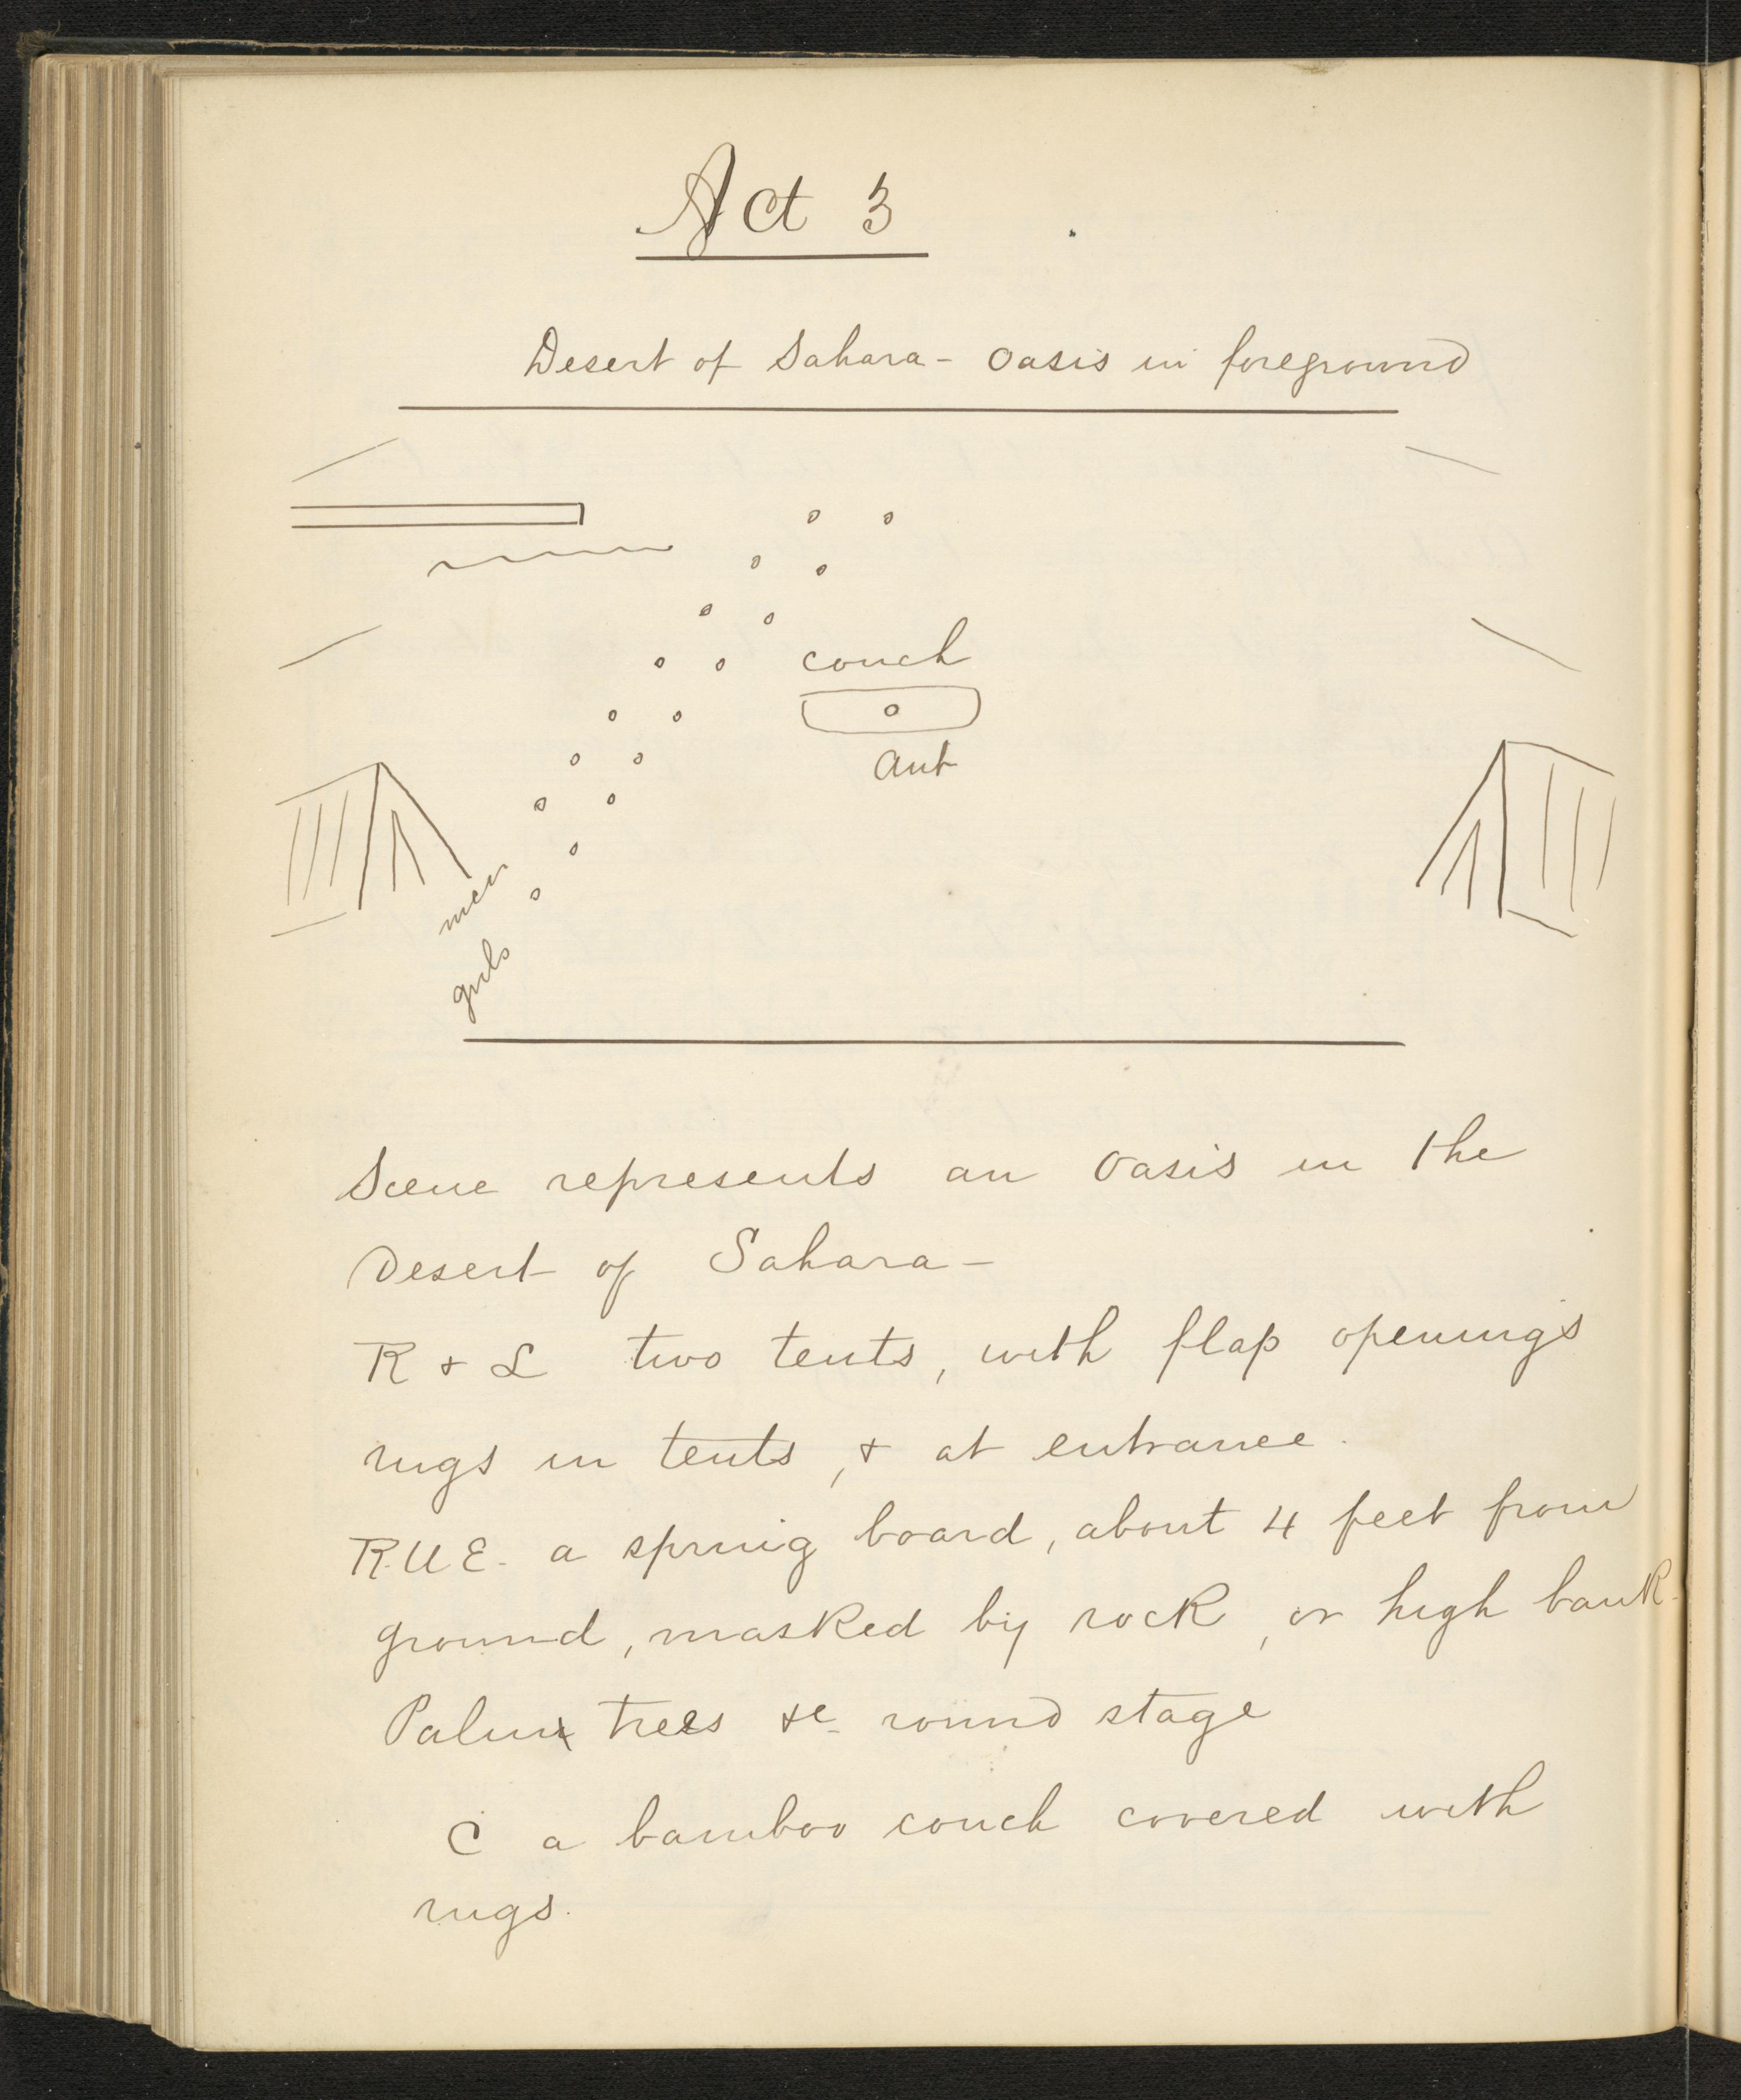 Act 3
Desert of Sahara - Oasis in foreground
couch
Ant
men
girls
Scene represents an Oasis in the
Desert of Sahara -
R & L two tents, with flap openings
rugs in tents, & at entrance.
R.U.E. a spring board, about 4 feet from
ground, masked by rock, or high bank.
Palm trees &c round stage
C a bamboo couch covered with
rugs.